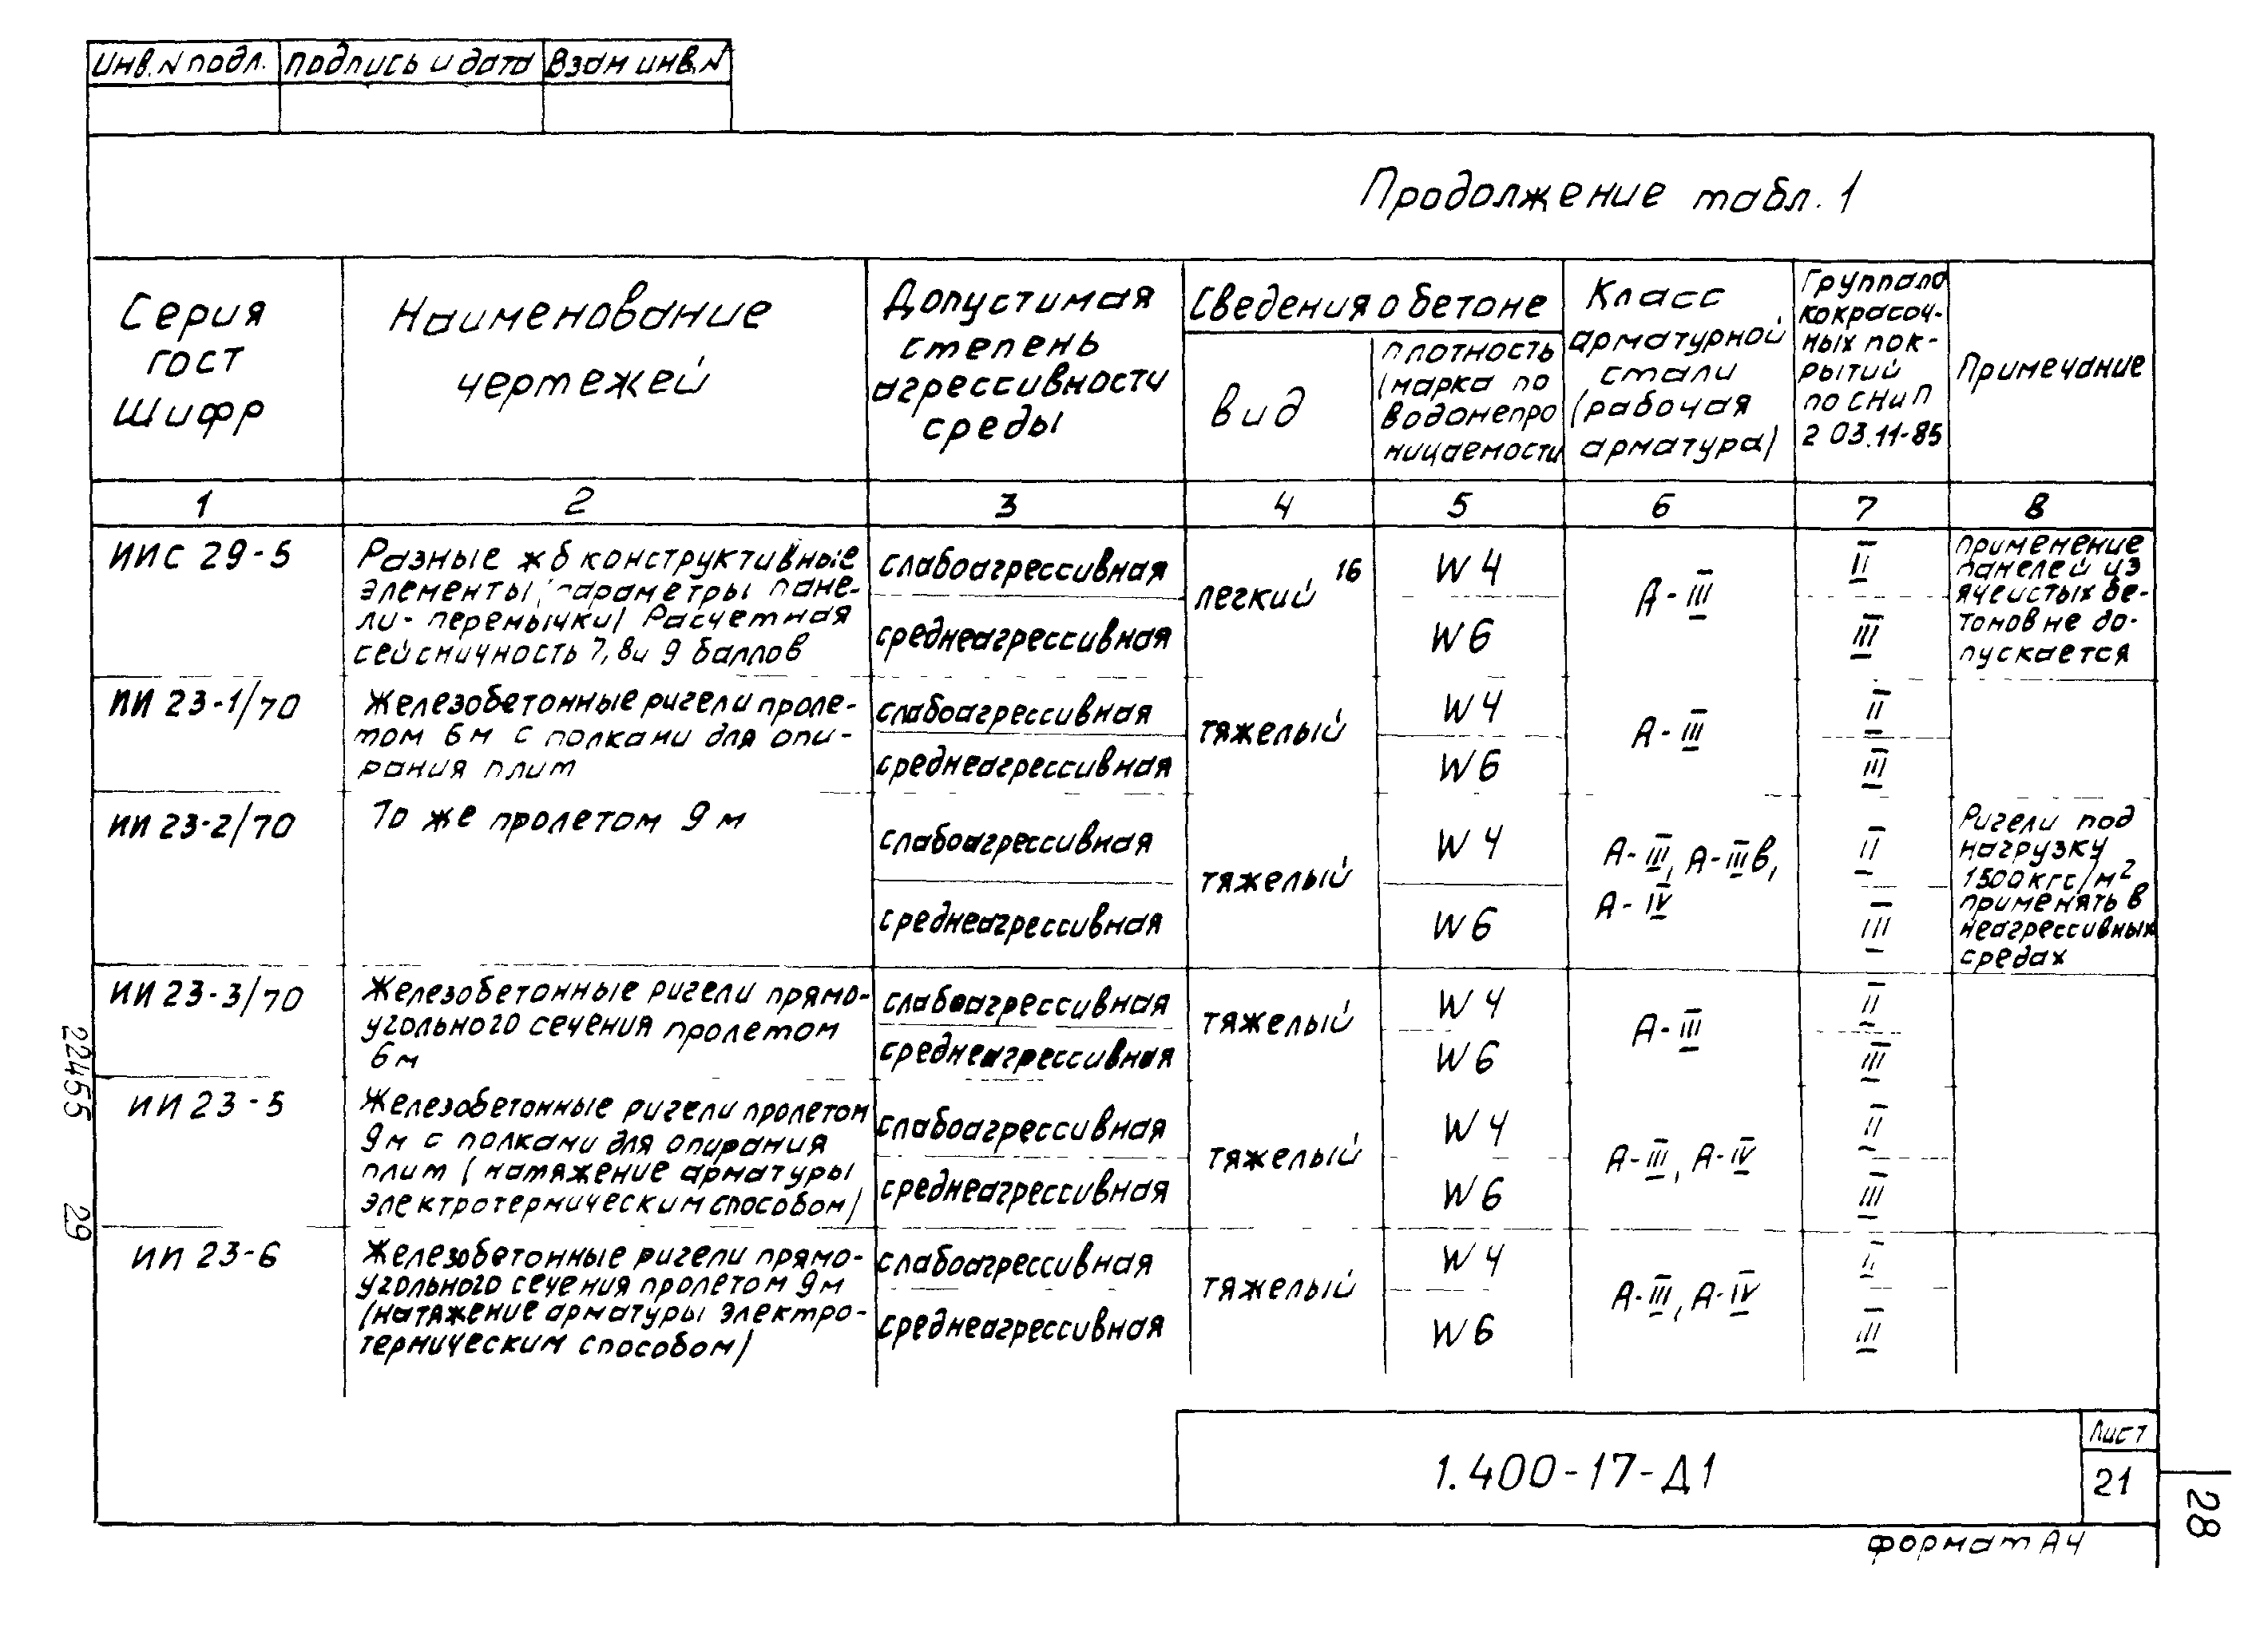 Инв. N подл. Подпись и дата Взам инв. N
Продолжение табл. 1
Серия
гост
Шифр
Наименование
чертежей
Допустимая
степень
агрессивности
среды
Сведения о бетоне
вид
плотность
(марка по
водонепро
ницаемости
Класс
арматурной
стали
(рабочая
арматура)
Группа ла
кокрасоч-
ных пок-
рытий
по СНиП
2 03.11-85
Примечание
1 2 3 4 5 6 7 8
ИИС 29-5
Разные жб конструктивные
элементы (параметры пане-
ли-перемычки) Расчетная
сейсмичность 7, 8 и 9 баллов
слабоагрессивная
среднеагрессивная
легкий 16
W4
W6
А-III
II
III
применение
панелей из
ячеистых бе-
тонов не до-
пускается
ИИ 23-1/70
Железобетонные ригели проле-
том 6м с полками для опи-
рания плит
слабоагрессивная
среднеагрессивная
тяжелый
W4
W6
А-III
II
III
ИИ 23-2/70
То же пролетом 9 м
слабоагрессивная
среднеагрессивная
тяжелый
W4
W6
А-III, А-IIIв,
А-IV
II
III
Ригели под
нагрузку
1500кгс/м²
применять в
неагрессивных
средах
ИИ 23-3/70
Железобетонные ригели прямо-
угольного сечения пролетом
6м
слабоагрессивная
среднеагрессивная
тяжелый
W4
W6
А-III
II
III
ИИ 23-5
Железобетонные ригели пролетом
9м с полками для опирания
плит (натяжение арматуры
электротермическим способом)
слабоагрессивная
среднеагрессивная
тяжелый
W4
W6
А-III, А-IV
II
III
ИИ 23-6
Железобетонные ригели прямо-
угольного сечения пролетом 9м
(натяжение арматуры электро-
термическим способом)
слабоагрессивная
среднеагрессивная
тяжелый
W4
W6
А-III, А-IV
II
III
22455 29
1.400-17-Д1
Лист
21
28
формат А4